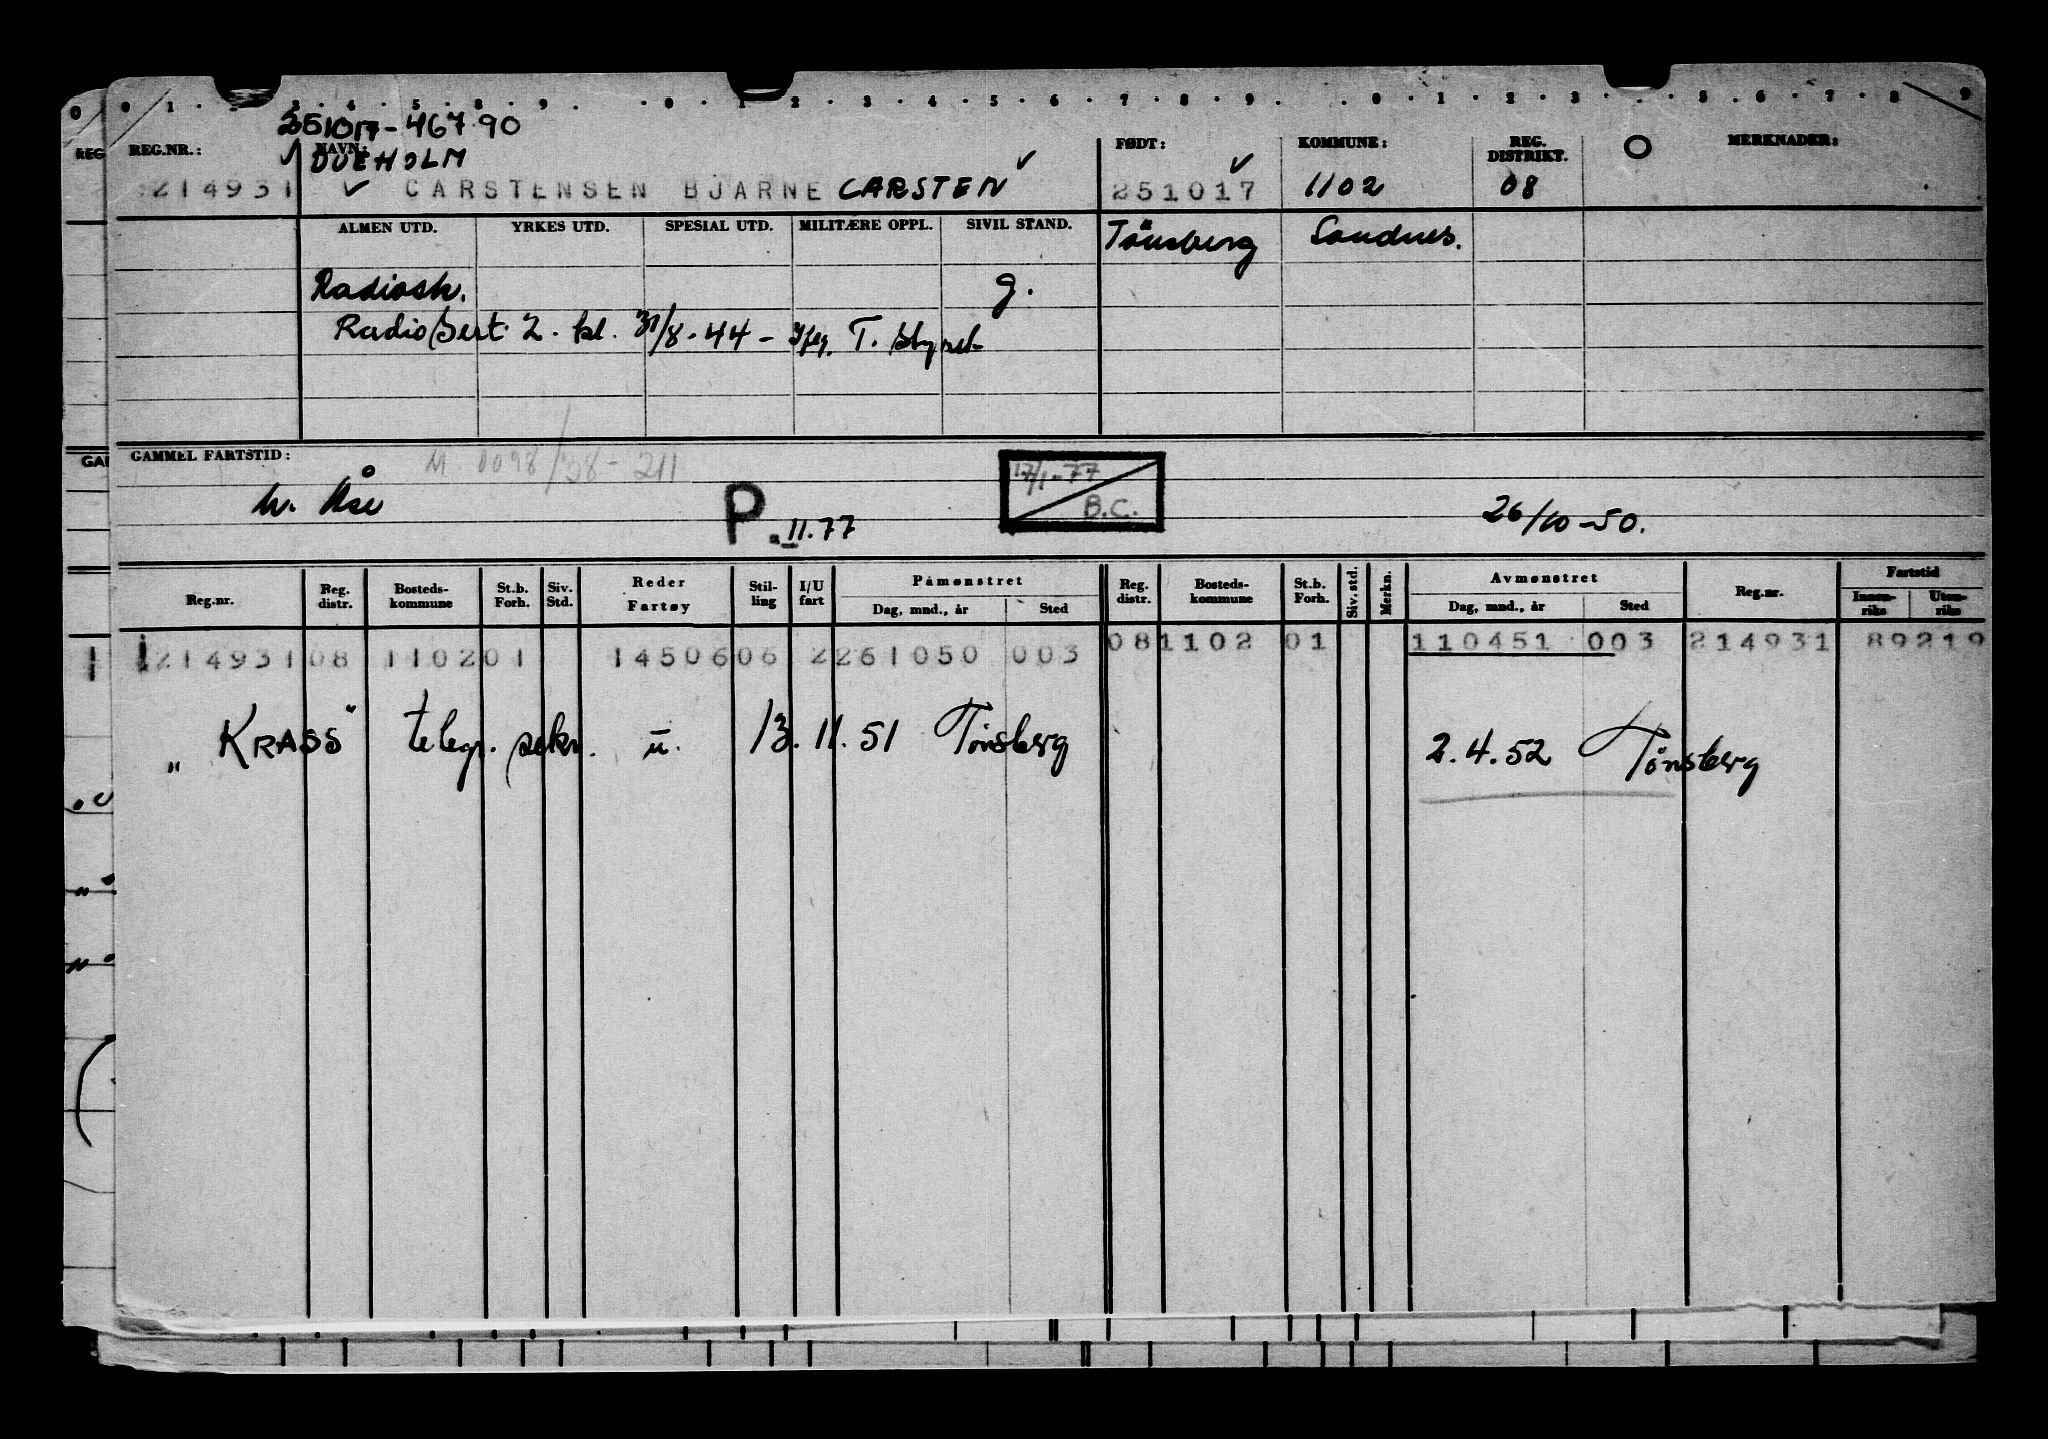 0 1 2 3 4 5 6 7 8 9 0 1 2 3 4 5 6 7 8 9
251017-46790
REG.NR.: NAVN: FØDT: KOMMUNE: REG. DISTRIKT. MERKNADER:
DUEHOLM
214931 CARSTENSEN BJARNE CARSTEN 251017 1102 08
ALMEN UTD. YRKES UTD. SPESIAL UTD. MILITÆRE OPPL. SIVIL STAND. Tönsberg Sandnes.
Radiosk. g.
Radio sert. 2. kl. 31/8-44 -
GAMMEL FARTSTID: M 0098/38-211
17/1-77
B.C.
h. Åse P. 11.77 26/10-50.
Reg.nr. Reg. distr. Bosteds-kommune St.b. Forh. Siv. Std. Reder Fartøy Stil-ling I/U fart Påmønstret Dag, mnd., år Sted Reg. distr. Bosteds-kommune St.b. Forh. Siv. std. Merkn. Avmønstret Dag, mnd., år Sted Reg.nr. Fartstid Innen-riks Uten-riks
214931 08 1102 01 14506 06 2 261050 003 08 1102 01 110451 003 214931 89219
„KRASS" telegr. sekr. u. 13.11.51 Tönsberg 2.4.52 Tønsberg